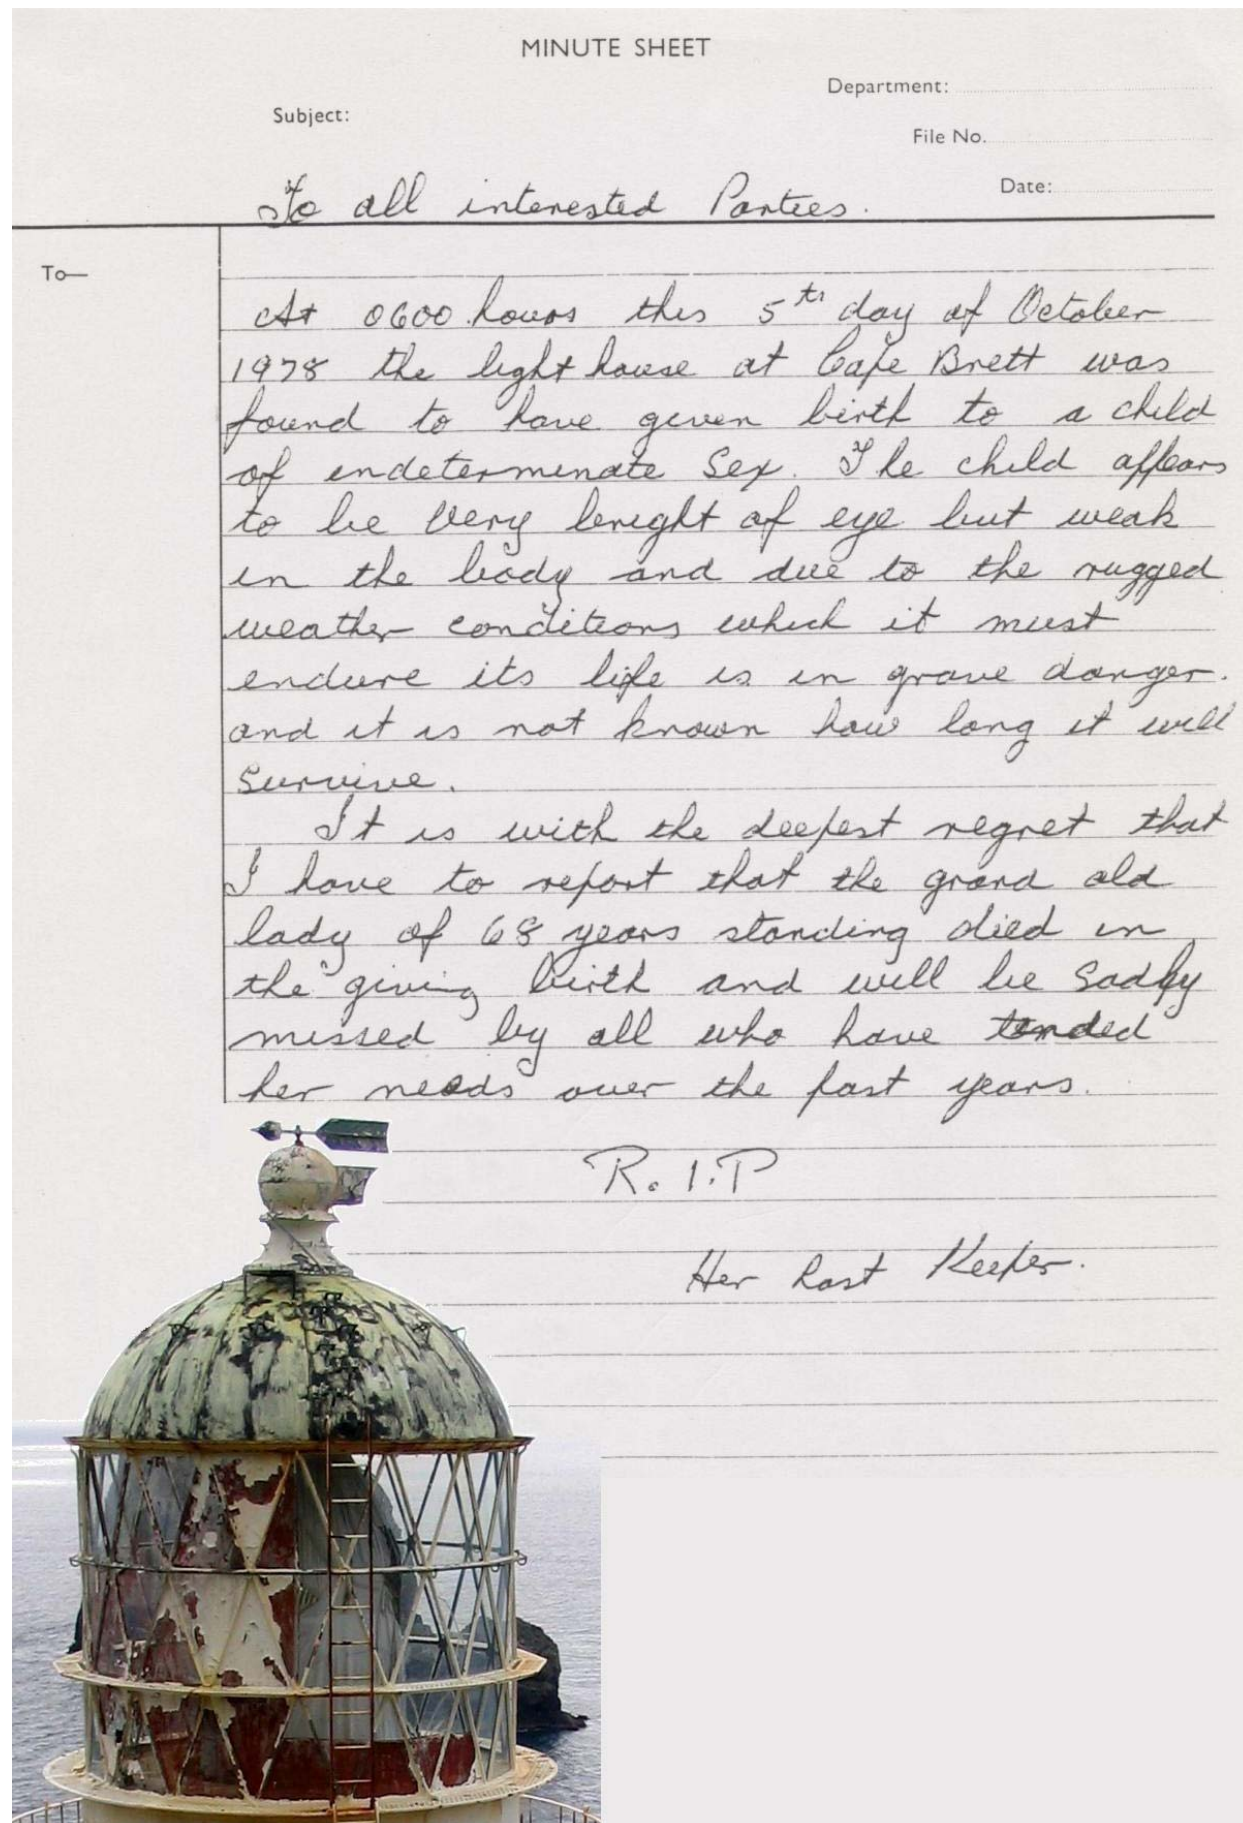 MINUTE SHEET
Department:
Subject:
File No.
Date:
To all interested Parties.
To—
At 0600 hours this 5th day of October
1978 the light house at Cape Brett was
found to have given birth to a child
of indeterminate Sex. The child appears
to be Very bright of eye but weak
in the body and due to the rugged
weather conditions which it must
endure its life is in grave danger.
and it is not known how long it will
Survive.
It is with the deepest regret that
I have to report that the grand old
lady of 68 years standing died in
the giving birth and will be Sadly
missed by all who have tended
her needs over the past years.
R.I.P
Her Last Keeper.